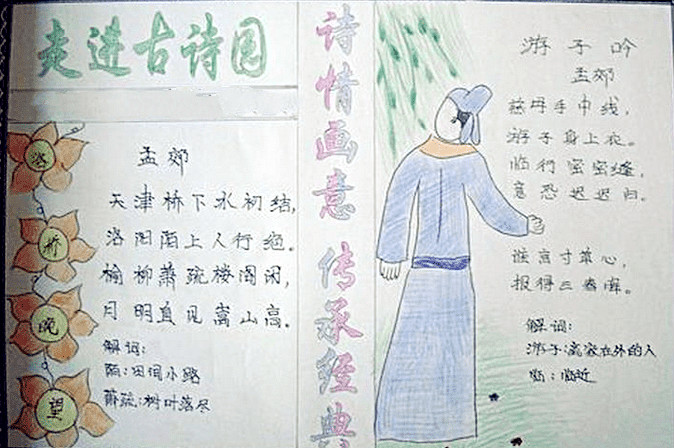 走进古诗园
洛
桥
晚
望
孟郊
天津桥下水初结,
洛阳陌上人行绝。
榆柳萧疏楼阁闲,
月明直见嵩山高。
解词:
陌:田间小路
萧疏:树叶落尽
诗情画意 传承经典
游子吟
孟郊
慈母手中线,
游子身上衣。
临行密密缝,
意恐迟迟归。
谁言寸草心,
报得三春晖。
解词:
游子:离家在外的人
临:临近